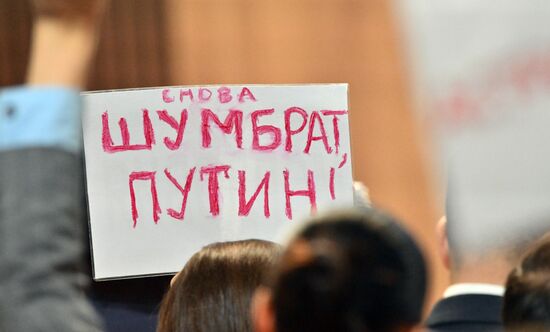 СНОВА
ШУМБРАТ,
ПУТИН!